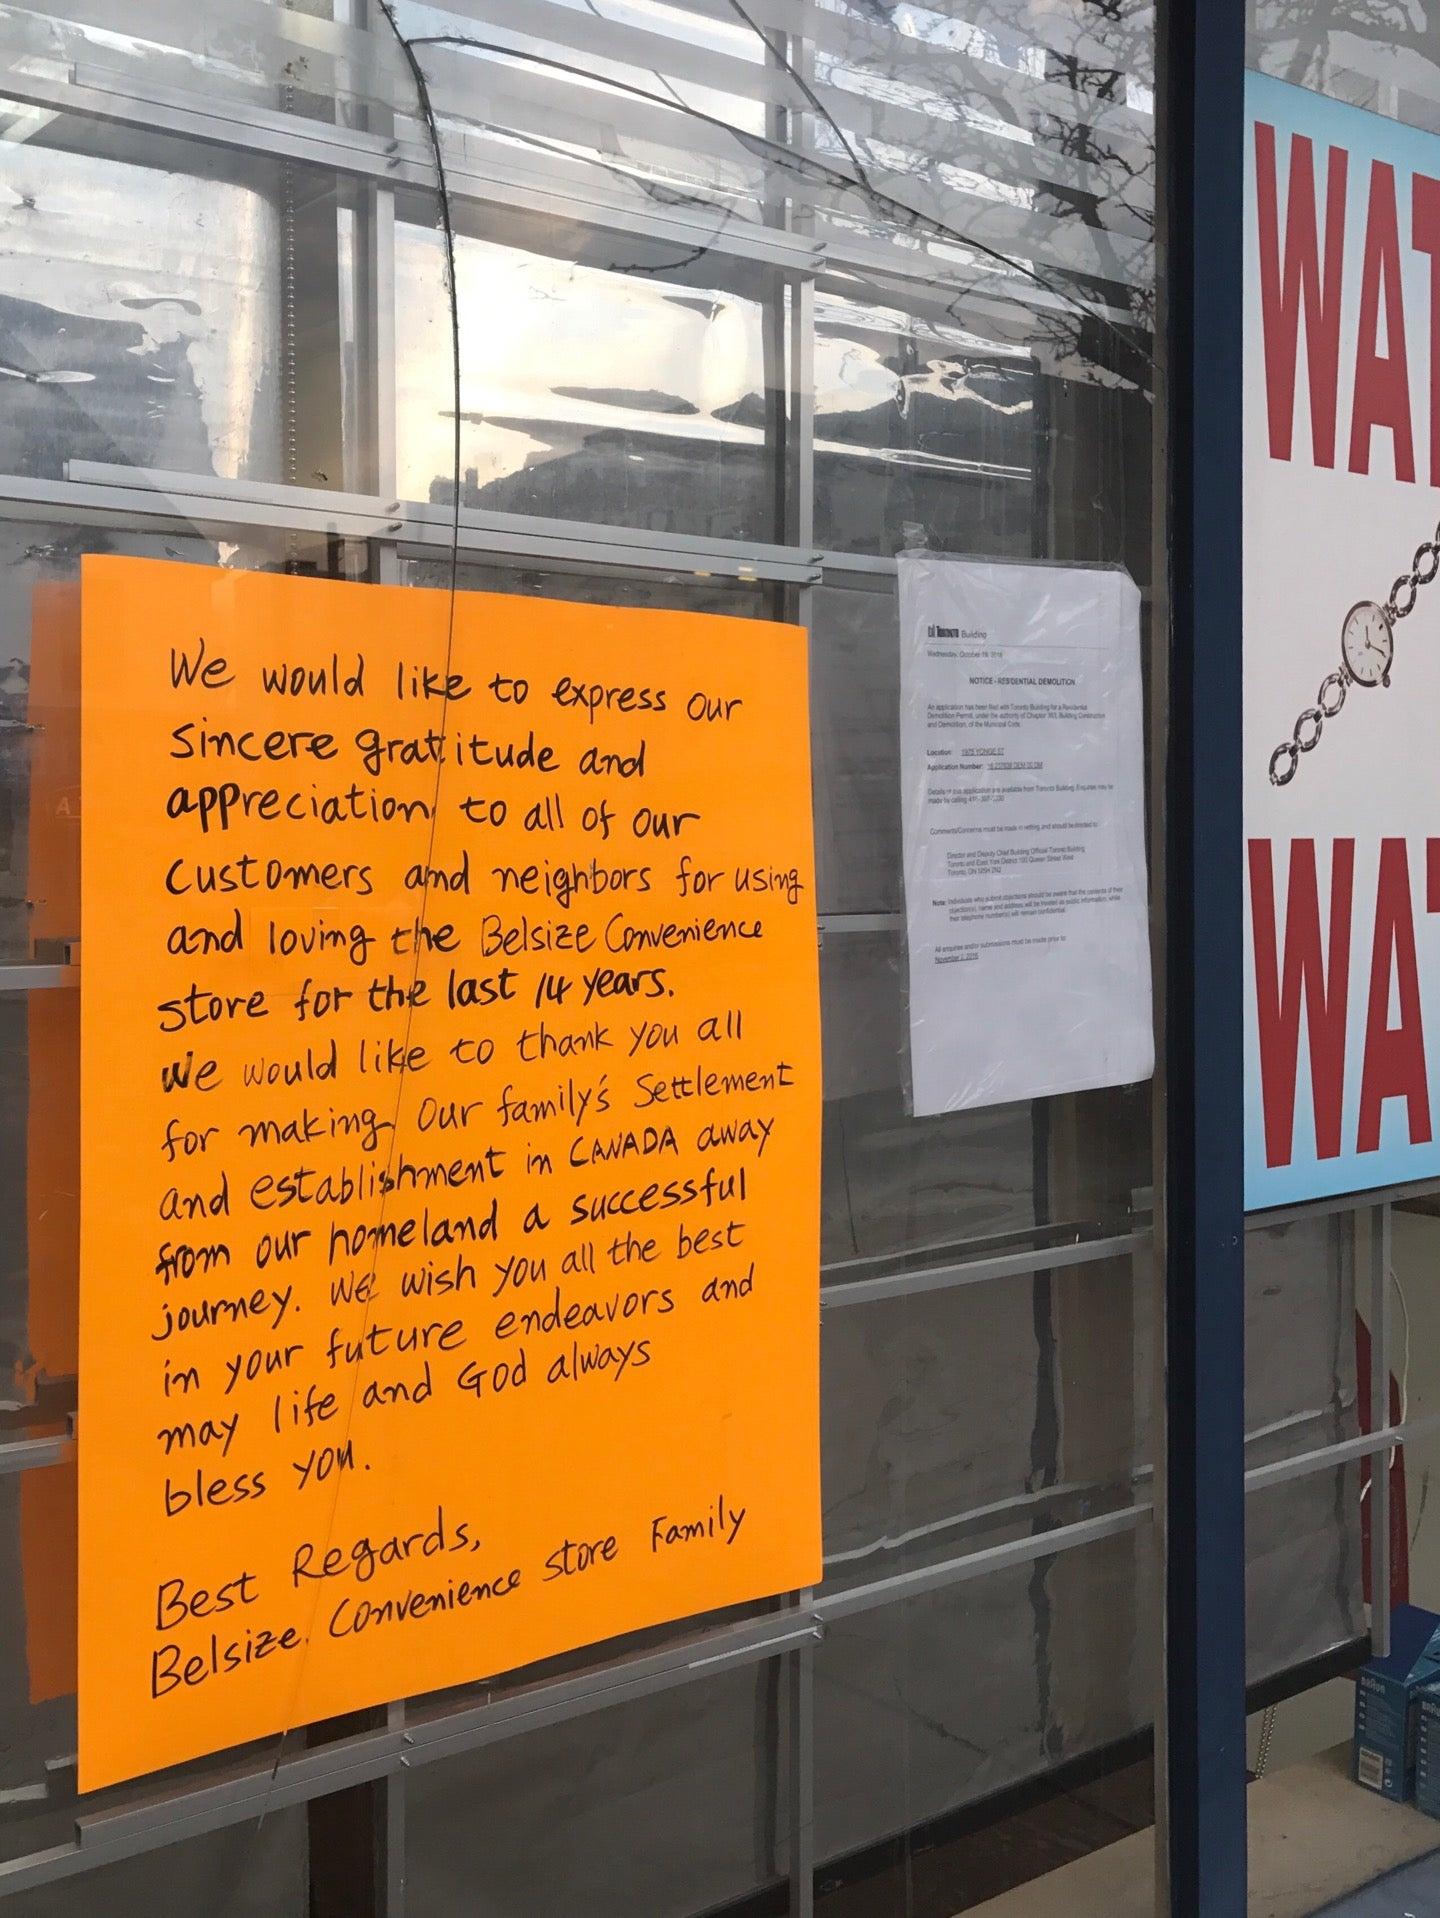 We would like to express our
sincere gratitude and
appreciation to all of our
customers and neighbors for using
and loving the Belsize Convenience
store for the last 14 years.
We would like to thank you all
for making our family's Settlement
and establishment in CANADA away
from our homeland a successful
journey. We wish you all the best
in your future endeavors and
may life and God always
bless you.
Best Regards,
Belsize. Convenience store Family
TORONTO Building
Wednesday, October 19, 2016
NOTICE - RESIDENTIAL DEMOLITION
An application has been filed with Toronto Building for a Residential
Demolition Permit, under the authority of Chapter 363, Building Construction
and Demolition, of the Municipal Code.
Location: 1975 YONGE ST
Application Number:
Details of this application are available from Toronto Building. Enquiries may be
made by calling
Comments/Concerns must be made in writing and should be directed to:
Director and Deputy Chief Building Official Toronto Building
Toronto and East York District 100 Queen Street West
Toronto, ON M5H 2N2
Note: Individuals who submit objections should be aware that the contents of their
objection(s), name and address will be treated as public information, while
their telephone number(s) will remain confidential.
All enquiries and/or submissions must be made prior to:
November 2, 2016
WAT
WAT
BRAUN